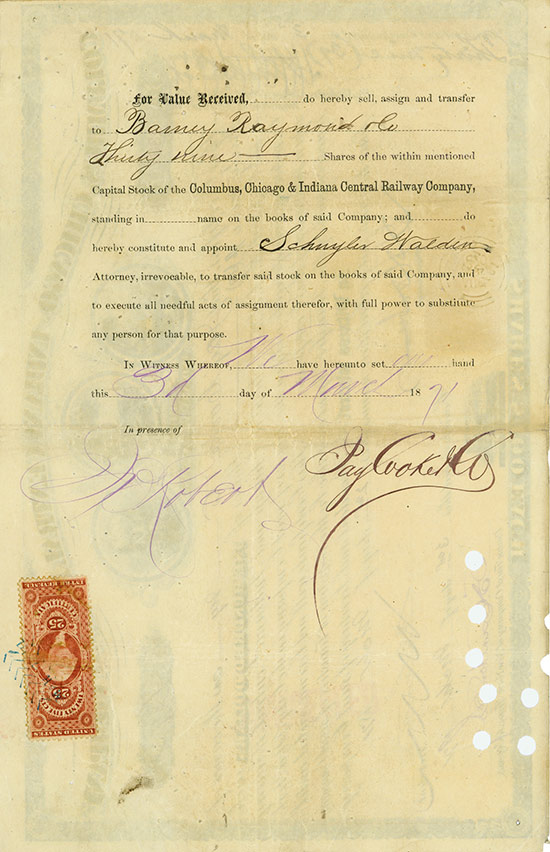 For Value Received, do hereby sell, assign and transfer
to Barney Raymond & Co
Thirty nine — Shares of the within mentioned
Capital Stock of the Columbus, Chicago & Indiana Central Railway Company,
standing in name on the books of said Company; and do
hereby constitute and appoint Schuyler Walden
Attorney, irrevocable, to transfer said stock on the books of said Company, and
to execute all needful acts of assignment therefor, with full power to substitute
any person for that purpose.
In Witness Whereof, We have hereunto set our hand
this 3d day of March 1871
In presence of
Jay Cooke & Co
Robert
INTER. REVENUE
25
25
UNITED STATES